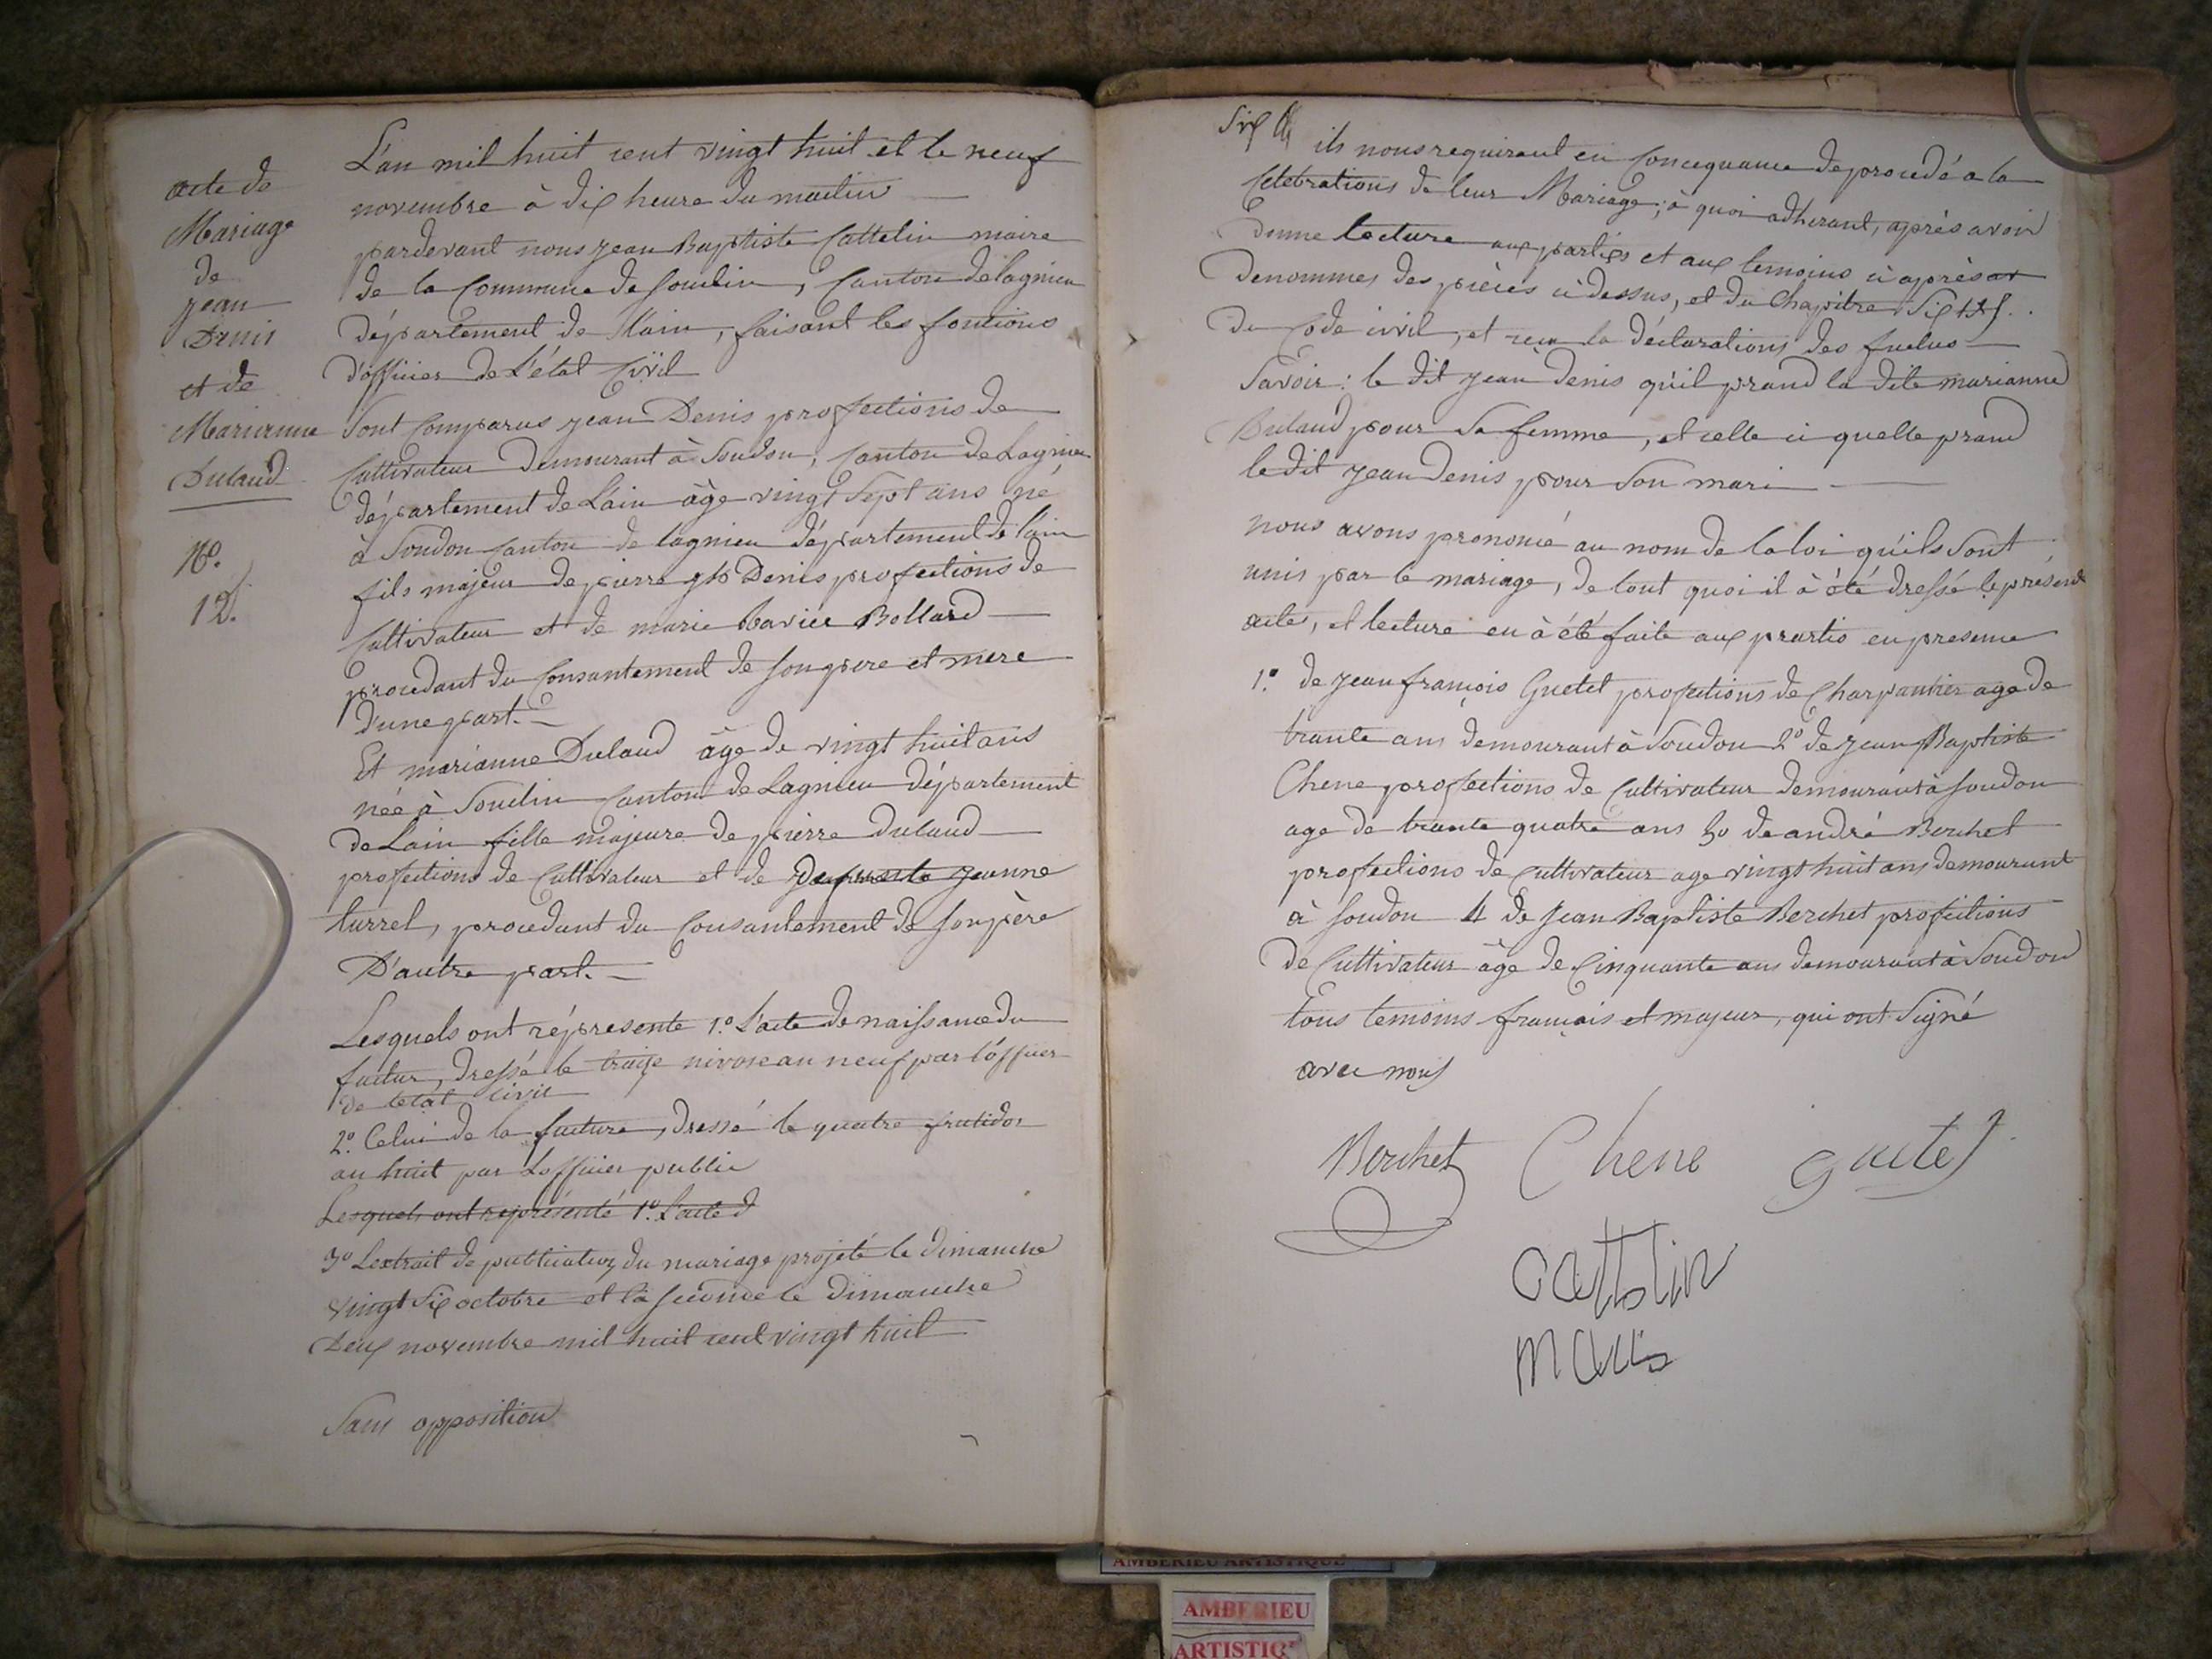 acte de
Mariage
de
jean
Denis
et de
Marianne
Dulaud
No.
12.
L'an mil huit cent vingt huit et le neuf
novembre à dix heure du matin
pardevant nous jean Baptiste Cattelin maire
de la Commune de Souclin, Canton de lagnieu
département de l'ain, faisant les fontions
d'officier de L'état Civil
Sont Comparus jean Denis profections de
Cultivateur Demourant à Soudon, Canton de Lagnieu
département de L'ain âge vingt Sept ans né
à Soudon Canton de lagnieu département de l'ain
fils majeur de pierre Denis profections de
Cultivateur et de marie Bollard
procedant du Consantement de son pere et mere
D'une part.
Et marianne Dulaud âge de vingt huit ans
née à Souclin Canton de Lagnieu département
de Lain fille majeure de pierre Dulaud
profections de Cultivateur et de defunte jeanne
turrel, procedant du Consantement de son père
D'autre part.
Lesquels ont réprésente 1.º L'acte de naissance du
futur, dressé le traize nivose an neuf par l'officier
de letat civil
2º Celui de la future, dressé le quatre frutidor
an huit par L'officier public
Lesquels ont représenté 1º. L'acte d
3º Lextrait de publication du mariage projeté le dimanche
vingt Six octobre et la seconde le Dimanche
Deux novembre mil huit cent vingt huit
Sans opposition
Six ils nous requirant en Concequance de procedé a la
Celebrations de leur Mariage; à quoi adherant, après avoir
Donne lecture aux parties et aux temoins ci après
denommes des pièces ci dessus, et du Chapitre Six
Du Code civil, et recu la déclarations des futus
Savoir: le dit jean Denis qu'il prand la dite marianne
Dulaud pour Sa femme, et celle ci quelle prand
le dit jean Denis pour Son mari
nous avons prononcé au nom de la loi qu'ils Sont
unis par le mariage, de tout quoi il à été dressé le présent
acte, et lecture en à été faite aux partis en presence
1.º de jean françois Guetet profections de Charpantier age de
trante ans demourant à Soudon 2º de jean Baptiste
Chene profections de Cultivateur demourant à Soudon
age de trante quatre ans 3º de andré Berchet
profections de cultivateur age vingt huit ans demourant
à Soudon 4 de jean Baptiste Berchet profections
de Cultivateur âge de Cinquante ans demourant à Soudon
tous temoins français et majeur, qui ont Signé
avec nous
Berchet Chene guetet
Cattelin
AMBERIEU ARTISTIQUE
AMBERIEU
ARTISTIQ